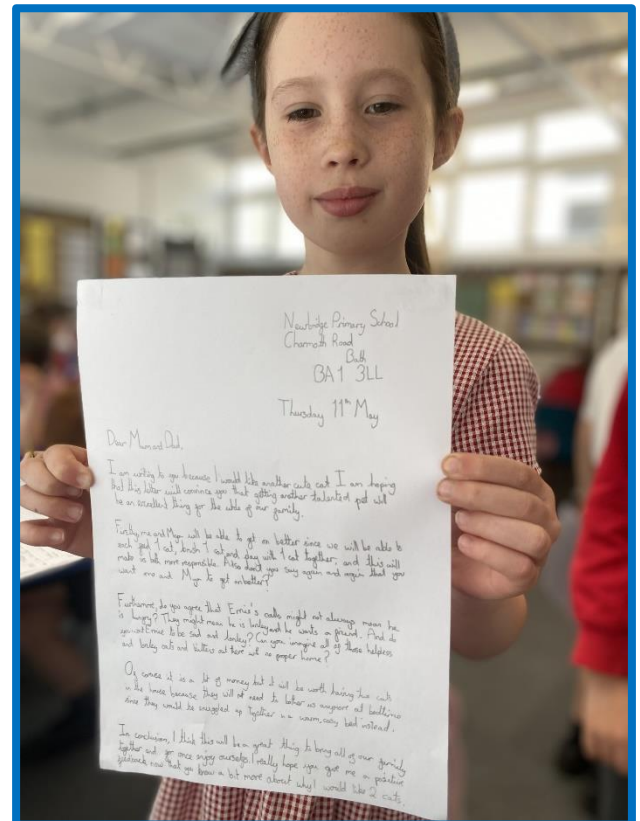 Newbridge Primary School
Charmoth Road
Bath
BA1 3LL
Thursday 11th May
Dear Mum and Dad,
I am writing to you because I would like another cute cat. I am hoping
that this letter will convince you that getting another talented pet will
be an excellent thing for the whole of our family.
Firstly, me and will be able to get on better since we will be able to
each feed 1 cat, brush 1 cat, and play with 1 cat together, and this will
make us both more responsible. Also don't you say again and again that you
want me and to get on better?
Furthermore, do you agree that Ernie's calls might not always mean he
is hungry? They might mean he is lonley and he wants a friend. And do
you want Ernie to be sad and lonley? Can you imagine all of those helpless
and lonley cats and kittens out there with no proper home?
Of course it is a lot of money but it will be worth having two cats
in the house because they will not need to bother us anymore at bedtime
since they would be snuggled up together in a warm, cosy bed instead.
In conclusion, I think this will be a great thing to bring all of our family
together and for once enjoy ourselves. I really hope you give me a positive
feedback now that you know a bit more about why I would like 2 cats.